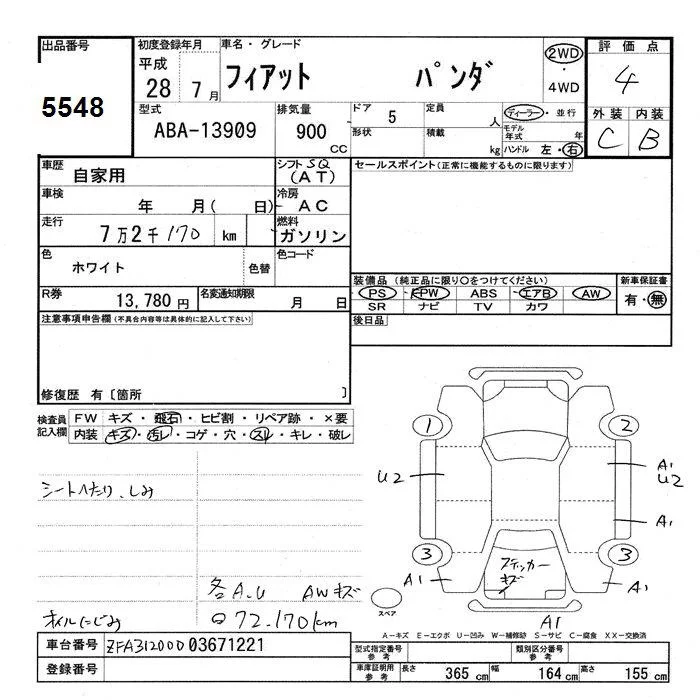 出品番号 初度登録年月 車名・グレード 評価点
5548 平成 28 7月 フィアット パンダ 2WD・4WD 4
型式 排気量 ドア 5 定員 人 ディーラー・並行 外装 内装
ABA-13909 900 CC 形状 積載 kg モデル年式 年 ハンドル 左・右 C B
車歴 自家用 シフト SQ (AT) セールスポイント(正常に機能するものに限ります)
車検 年 月( 日) 冷房 AC
走行 7万2千170 km 燃料 ガソリン
色 ホワイト 色替 色コード
装備品(純正品に限り○をつけてください) 新車保証書
R券 13,780円 名変通知期限 月 日 PS PW ABS エアB AW 有・無
SR ナビ TV カワ
注意事項申告欄(不具合内容等は具体的に記入して下さい) 後日品
修復歴 有〔箇所 〕
検査員記入欄 FW キズ・飛石・ヒビ割・リペア跡・×要
内装 キズ・汚レ・コゲ・穴・スレ・キレ・破レ
1 2
U2 A1 U2
シートへたり、しみ
A1
3 3
A1 ステッカーキズ A1
各A.U AWキズ スペア
オイルにじみ 72.170km A1
A-キズ E-エクボ U-凹み W-補修跡 S-サビ C-腐食 XX-交換済
車台番号 ZFA3120000 03671221 型式指定番号 参考 類別区分番号 参考
登録番号 車庫証明用 参考 長さ 365 cm 幅 164 cm 高さ 155 cm